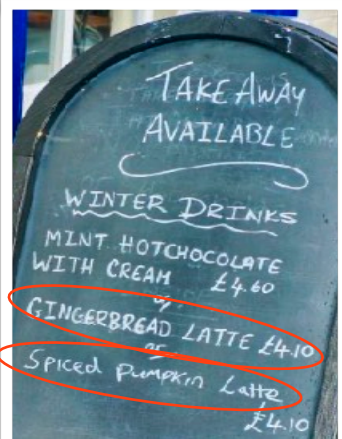 TAKE AWAY
AVAILABLE
WINTER DRINKS
MINT HOTCHOCOLATE
WITH CREAM £4.60
or
GINGERBREAD LATTE £4.10
or
Spiced Pumpkin Latte
£4.10